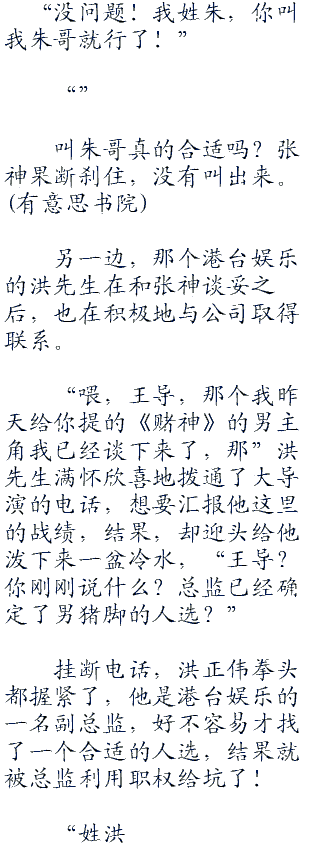 “没问题！我姓朱，你叫
我朱哥就行了！”
“”
叫朱哥真的合适吗？张
神果断刹住，没有叫出来。
(有意思书院)
另一边，那个港台娱乐
的洪先生在和张神谈妥之
后，也在积极地与公司取得
联系。
“喂，王导，那个我昨
天给你提的《赌神》的男主
角我已经谈下来了，那”洪
先生满怀欣喜地拨通了大导
演的电话，想要汇报他这里
的战绩，结果，却迎头给他
泼下来一盆冷水，“王导？
你刚刚说什么？总监已经确
定了男猪脚的人选？”
挂断电话，洪正伟拳头
都握紧了，他是港台娱乐的
一名副总监，好不容易才找
了一个合适的人选，结果就
被总监利用职权给坑了！
“姓洪